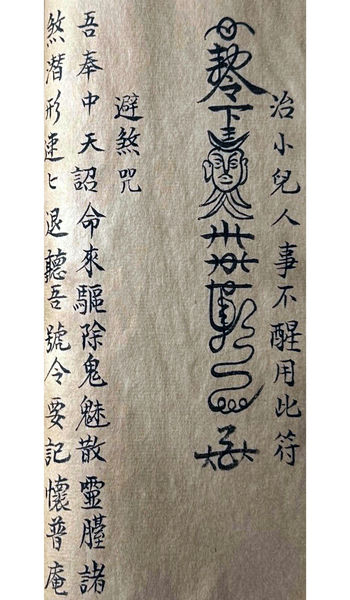 治小兒人事不醒用此符
勅令
避煞咒
吾奉中天詔命來驅除鬼魅散靈諸
煞潛形速匕退聽吾號令要記懷普庵